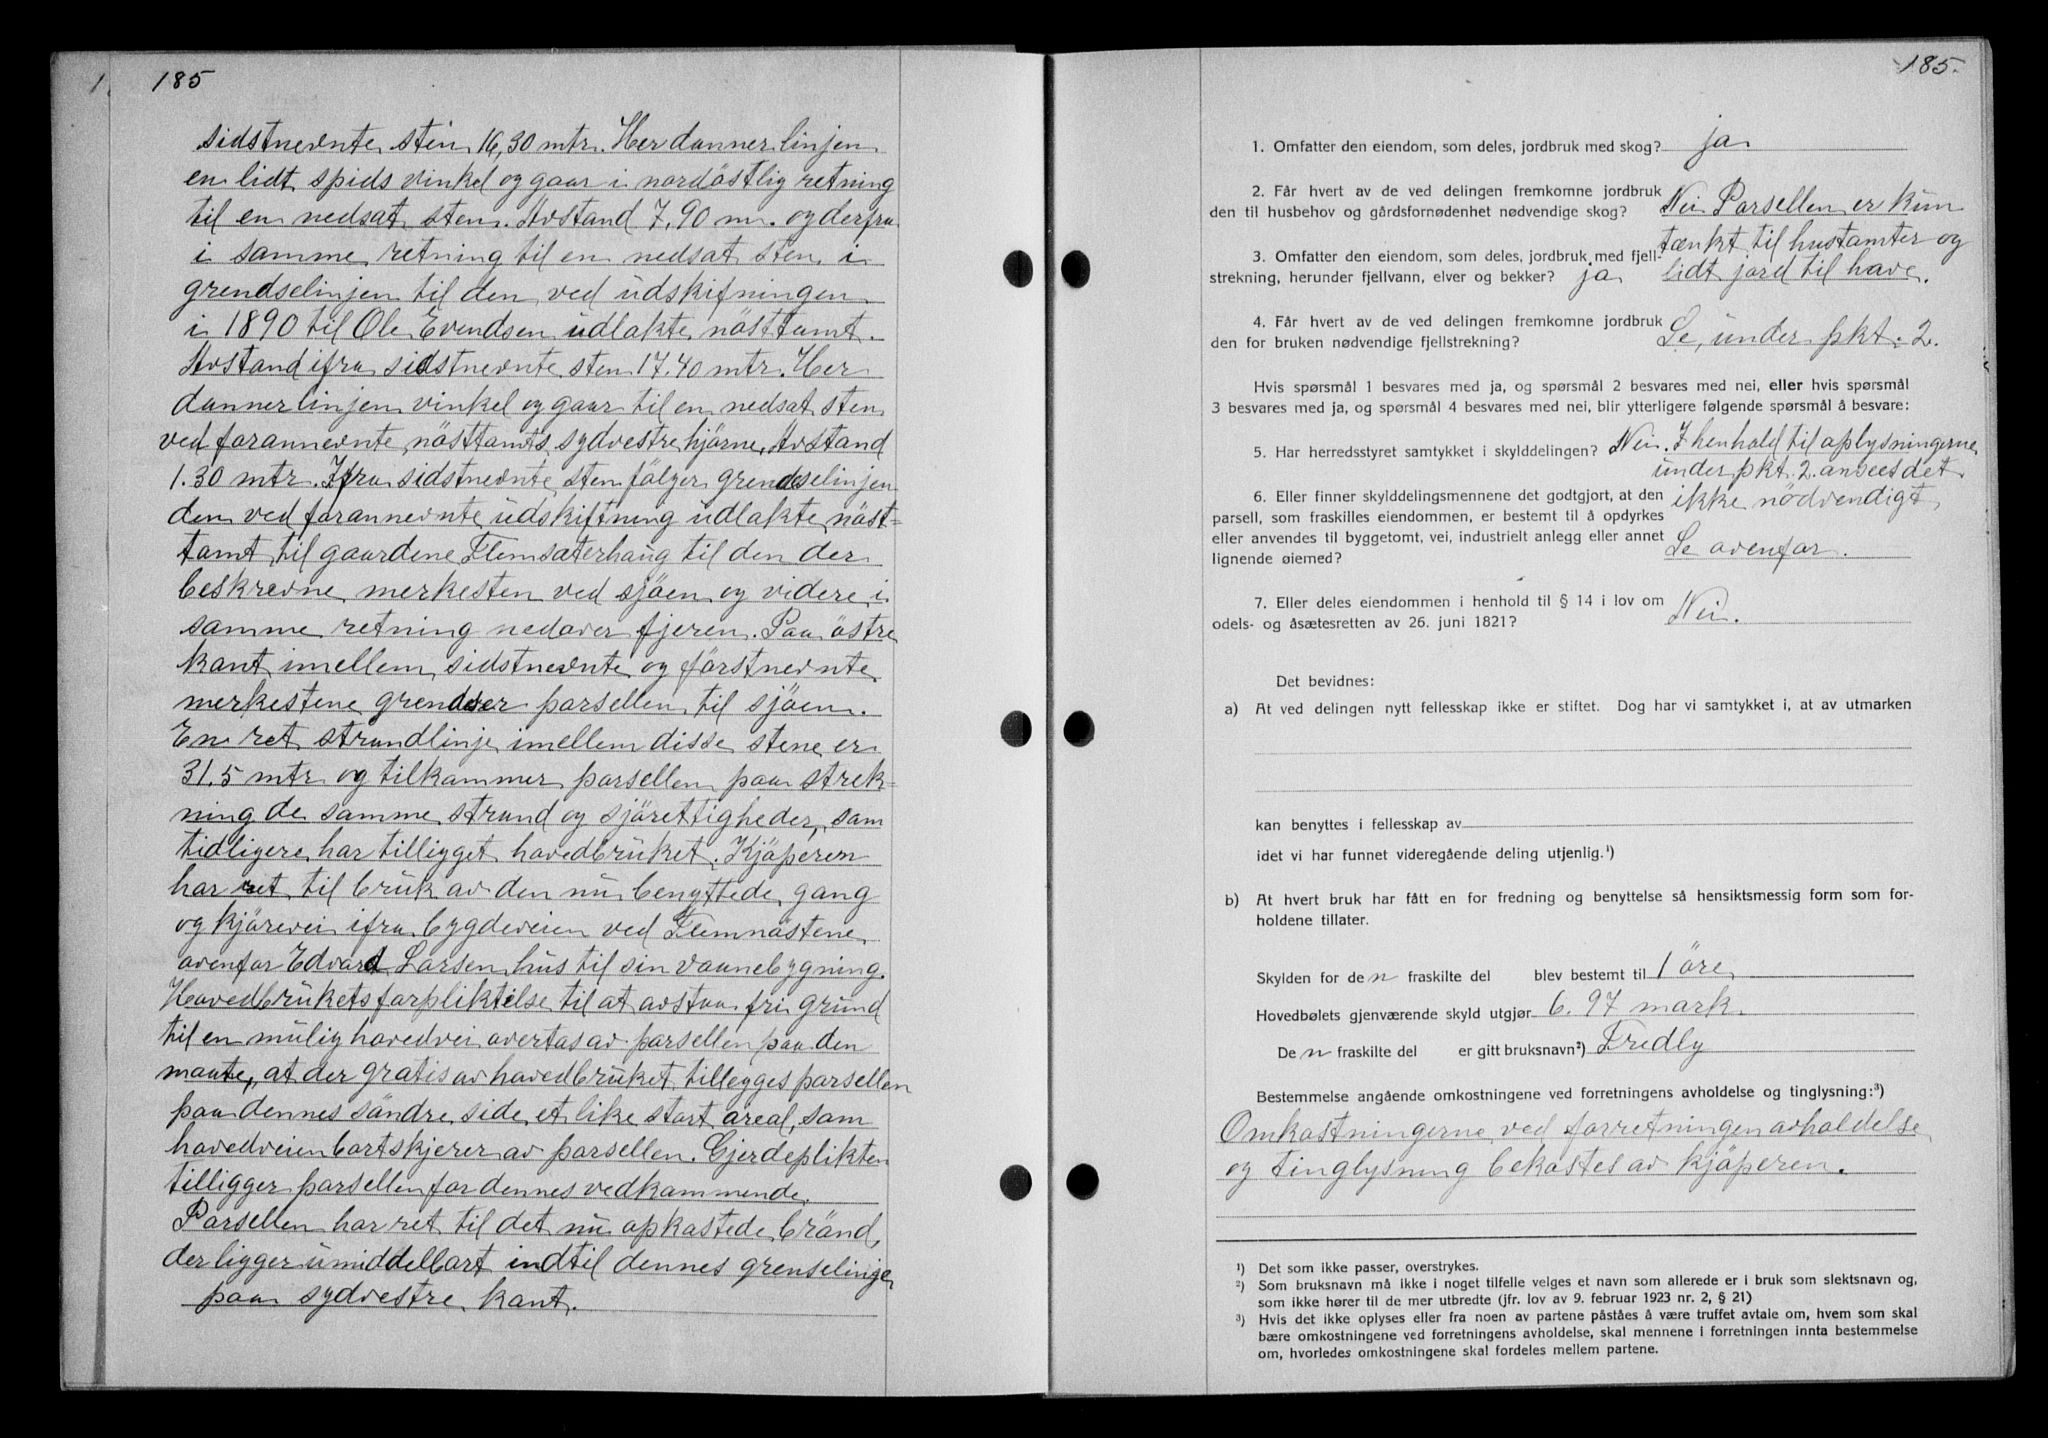 185
sidstnevnte sten 16,30 mtr. Her danner linjen
en lidt spids vinkel og gaar i nordöstlig retning
til en nedsat sten. Avstand 7,90 m. og derfra
i samme retning til en nedsat sten i
grendselinjen til den ved udskifningen
i 1890 til Ole Evendsen udlakte nösttamt.
Avstand ifra sidstnevnte sten 17.40 mtr. Her
danner linjen vinkel og gaar til en nedsat sten
ved forannevnte nösttamts sydvestre hjörne, Avstand
1.30 mtr. Ifra sidstnevnte sten fölger grendselinjen
den ved forannevnte udskiftning udlakte nöst=
tamt til gaardene Flemsæterhaug til den der
beskrevne merkesten ved sjöen og videre i
samme retning nedover fjeren. Paa östre
kant imellem sidstnevnte og förstnevnte
merkestene grendser parsellen til sjöen.
En ret strandlinje imellem disse stene er
31.5 mtr og tilkommer parsellen paa strek-
ning de samme strand og sjörettigheder, som
tidligere har tilligget hovedbruket. Kjöperen
har ret til bruk av den nu benyttede gang
og kjörevei ifra bygdeveien ved Flemnöstene
ovenfor Edvard Larsen hus til sin vaanebygning.
Hovedbrukets forpliktelse til at avstaa fri grund
til en mulig hovedvei overtas av parsellen paa den
maate, at der gratis av hovedbruket tillegges parsellen
paa dennes söndre side et like stort areal, som
hovedveien bortskjerer av parsellen. Gjerdeplikten
tilligger parsellen for dennes vedkommende.
Parsellen har ret til det nu opkastede brönd,
der ligger umiddelbart indtil dennes grenselinje
paa sydvestre kant.
185.
1. Omfatter den eiendom, som deles, jordbruk med skog? ja
2. Får hvert av de ved delingen fremkomne jordbruk
den til husbehov og gårdsfornødenhet nødvendige skog? Nei Parsellen er kun
tænkt til hustomter og
3. Omfatter den eiendom, som deles, jordbruk med fjell-
strekning, herunder fjellvann, elver og bekker? ja lidt jord til have.
4. Får hvert av de ved delingen fremkomne jordbruk
den for bruken nødvendige fjellstrekning? Se under pkt. 2.
Hvis spørsmål 1 besvares med ja, og spørsmål 2 besvares med nei, eller hvis spørsmål
3 besvares med ja, og spørsmål 4 besvares med nei, blir ytterligere følgende spørsmål å besvare:
5. Har herredsstyret samtykket i skylddelingen? Nei. I henhold til oplysningerne
under pkt. 2. ansees det
6. Eller finner skylddelingsmennene det godtgjort, at den ikke nödvendigt
parsell, som fraskilles eiendommen, er bestemt til å opdyrkes
eller anvendes til byggetomt, vei, industrielt anlegg eller annet
lignende øiemed? Se ovenfor.
7. Eller deles eiendommen i henhold til § 14 i lov om
odels- og åsætesretten av 26. juni 1821? Nei.
Det bevidnes:
a) At ved delingen nytt fellesskap ikke er stiftet. Dog har vi samtykket i, at av utmarken
kan benyttes i fellesskap av
idet vi har funnet videregående deling utjenlig.¹)
b) At hvert bruk har fått en for fredning og benyttelse så hensiktsmessig form som for-
holdene tillater.
Skylden for de n fraskilte del blev bestemt til 1 öre
Hovedbølets gjenværende skyld utgjør 6.97 mark.
De n fraskilte del er gitt bruksnavn²) Fredly
Bestemmelse angående omkostningene ved forretningens avholdelse og tinglysning:³)
Omkostningerne ved forretningen avholdelse
og tinglysning bekostes av kjöperen.
¹) Det som ikke passer, overstrykes.
²) Som bruksnavn må ikke i noget tilfelle velges et navn som allerede er i bruk som slektsnavn og,
som ikke hører til de mer utbredte (jfr. lov av 9. februar 1923 nr. 2, § 21)
³) Hvis det ikke oplyses eller fra noen av partene påståes å være truffet avtale om, hvem som skal
bære omkostningene ved forretningens avholdelse, skal mennene i forretningen innta bestemmelse
om, hvorledes omkostningene skal fordeles mellem partene.